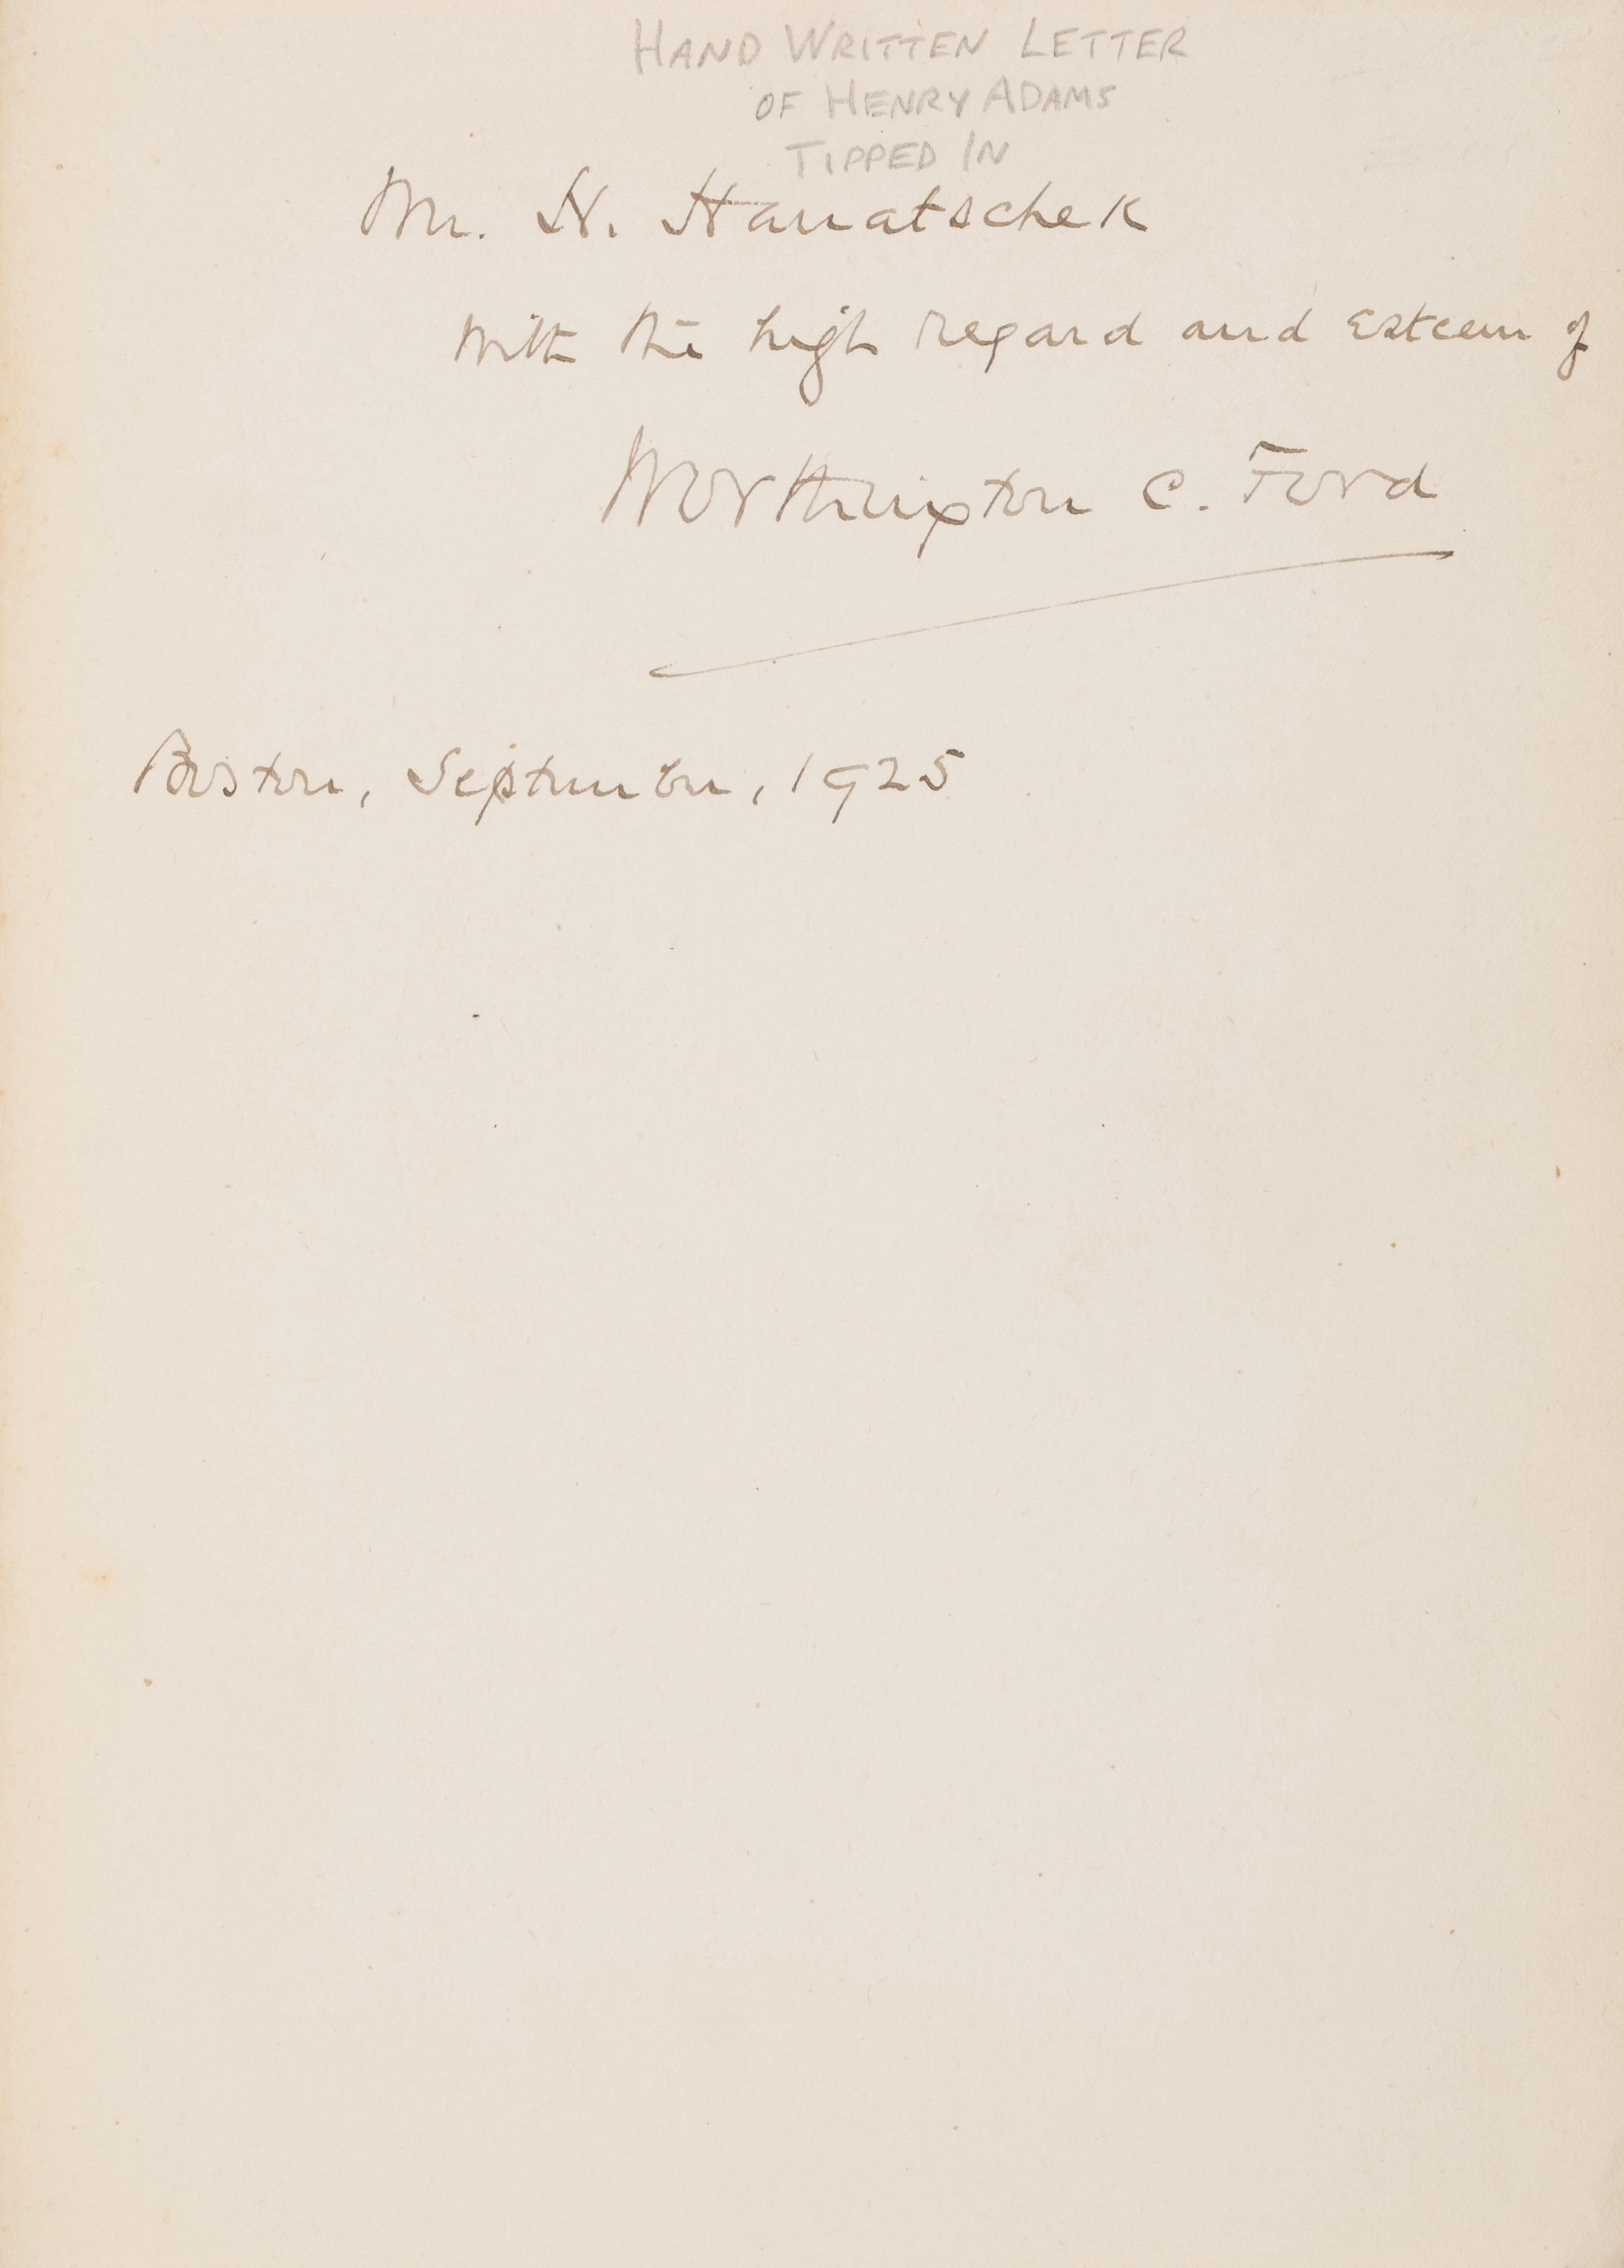 HAND WRITTEN LETTER
OF HENRY ADAMS
TIPPED IN
Mr. H. Hanatschek
With the high regard and esteem of
Worthington C. Ford
Boston, September, 1925